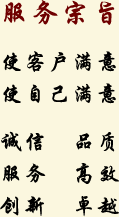 服务宗旨
使客户满意
使自己满意
诚信 品质
服务 高效
创新 卓越